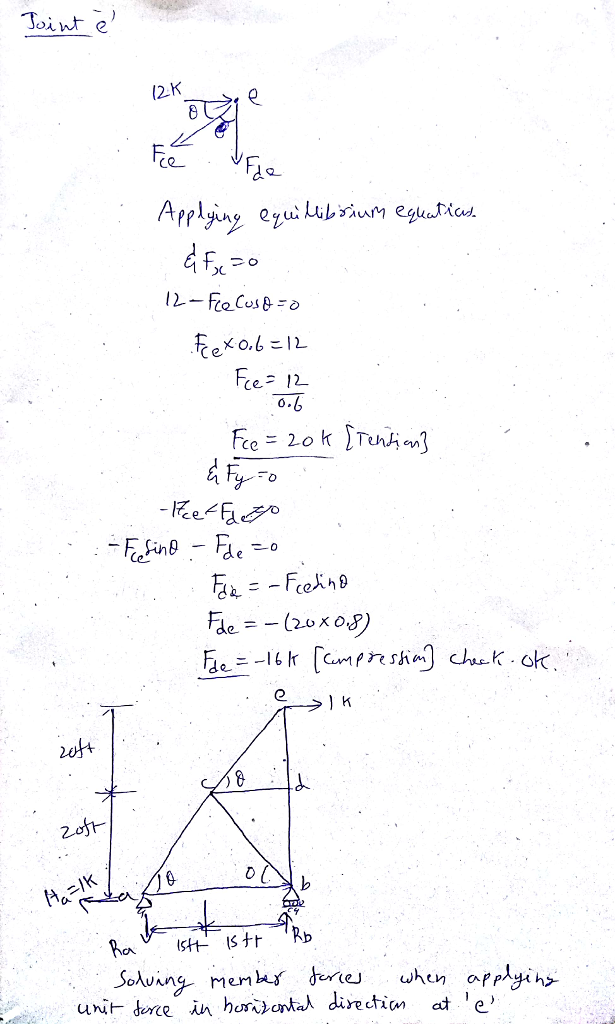 Joint 'e'
12K
e
θ
Fce
Fde
Applying equilibrium equations
Σ Fx = 0
12 - Fce Cosθ = 0
Fce x 0.6 = 12
Fce = 12
0.6
Fce = 20 K [Tension]
Σ Fy = 0
- Fce Sinθ - Fde = 0
Fde = - Fce Sinθ
Fde = - (20 x 0.8)
Fde = -16 K [Compression] check. ok.
e
1 K
20ft
c
θ
d
20ft
Ha=1K
a
θ
θ
b
Ra
15ft
15ft
Rb
Solving member forces when applying
unit force in horizontal direction at 'e'